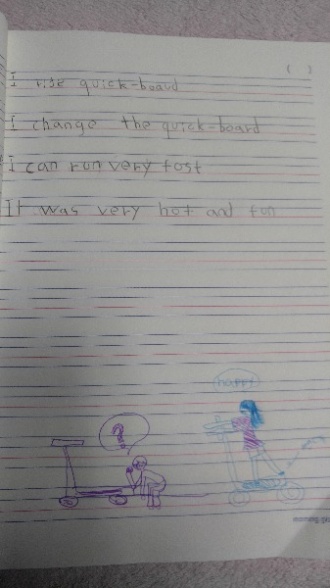 ( )
I ride quick-board
I change the quick-board
I can run very fost
It was very hot and fon
?
happy